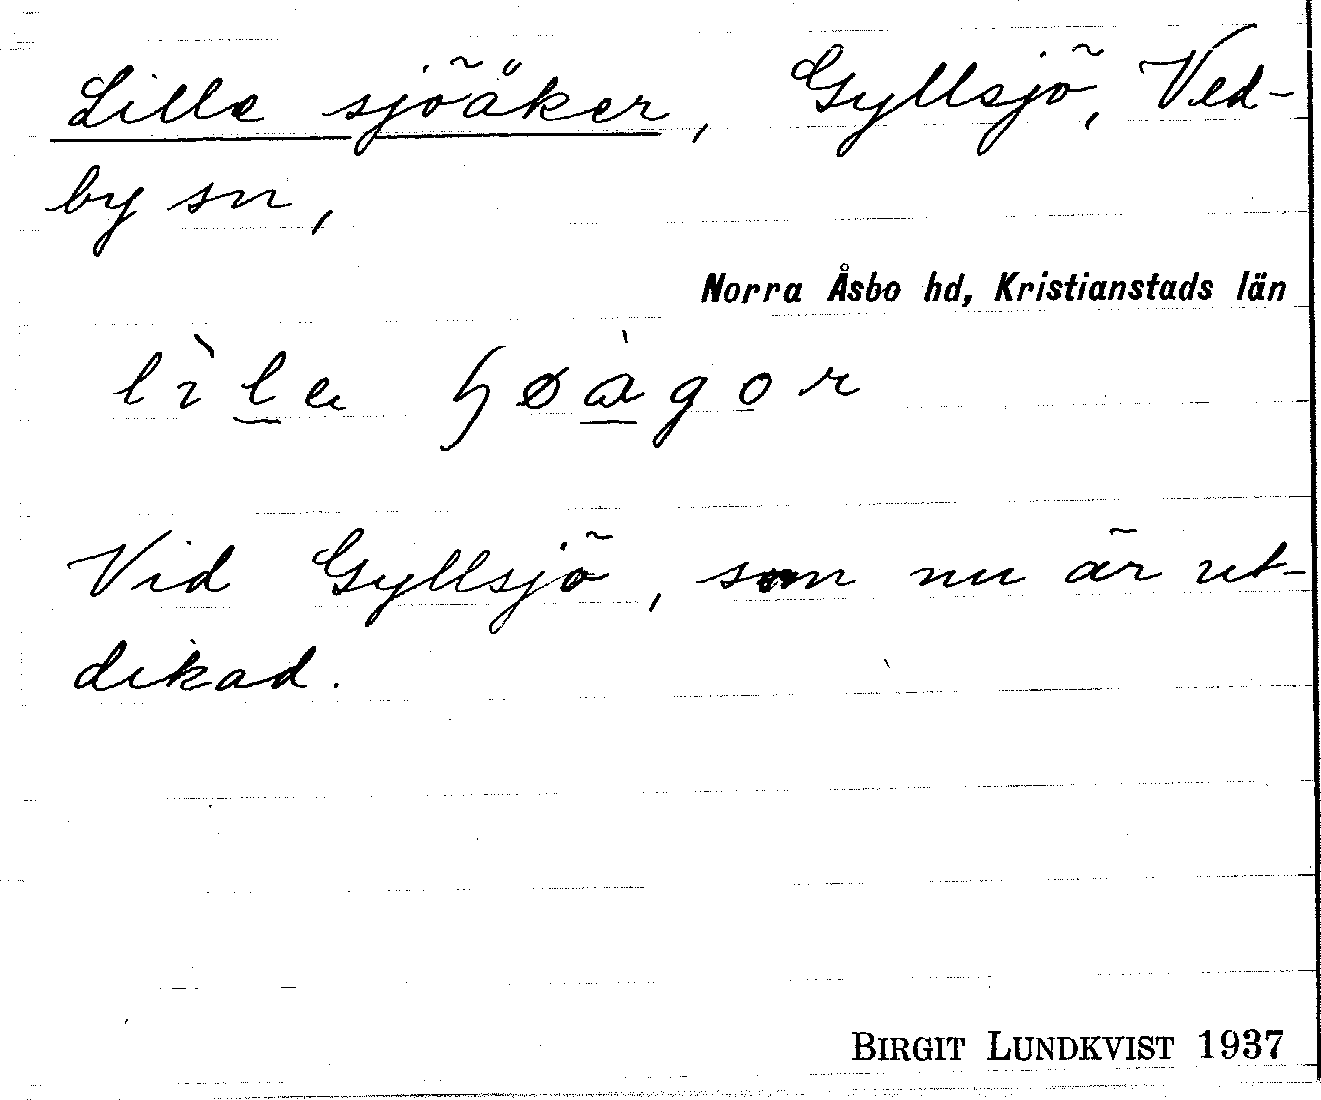 Lille sjöåker, Gyllsjö, Ved-
by sn,
Norra Åsbo hd, Kristianstads län
lìla ɧøàgor
Vid Gyllsjö, som nu är ut-
dikad.
BIRGIT LUNDKVIST 1937